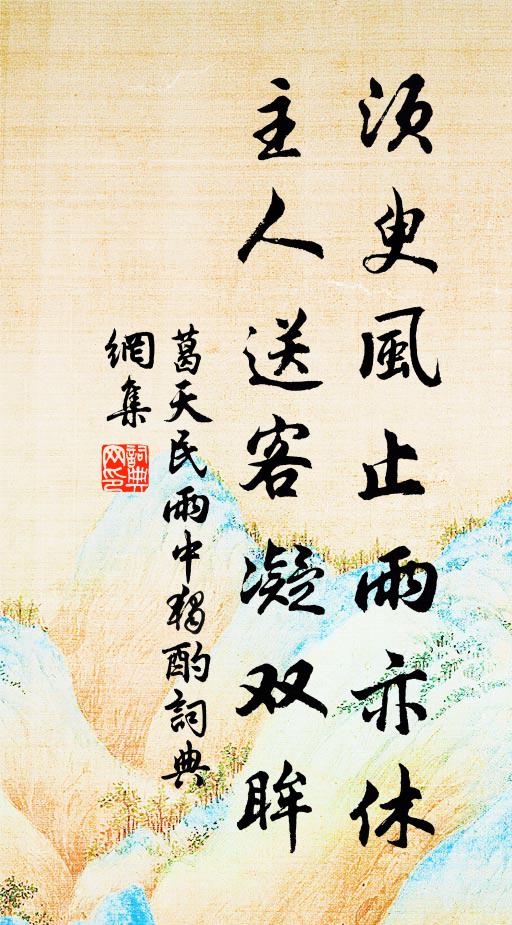 須臾風止雨亦休
主人送客凝双眸
葛天民雨中獨酌詞典
網集
詞典
网印